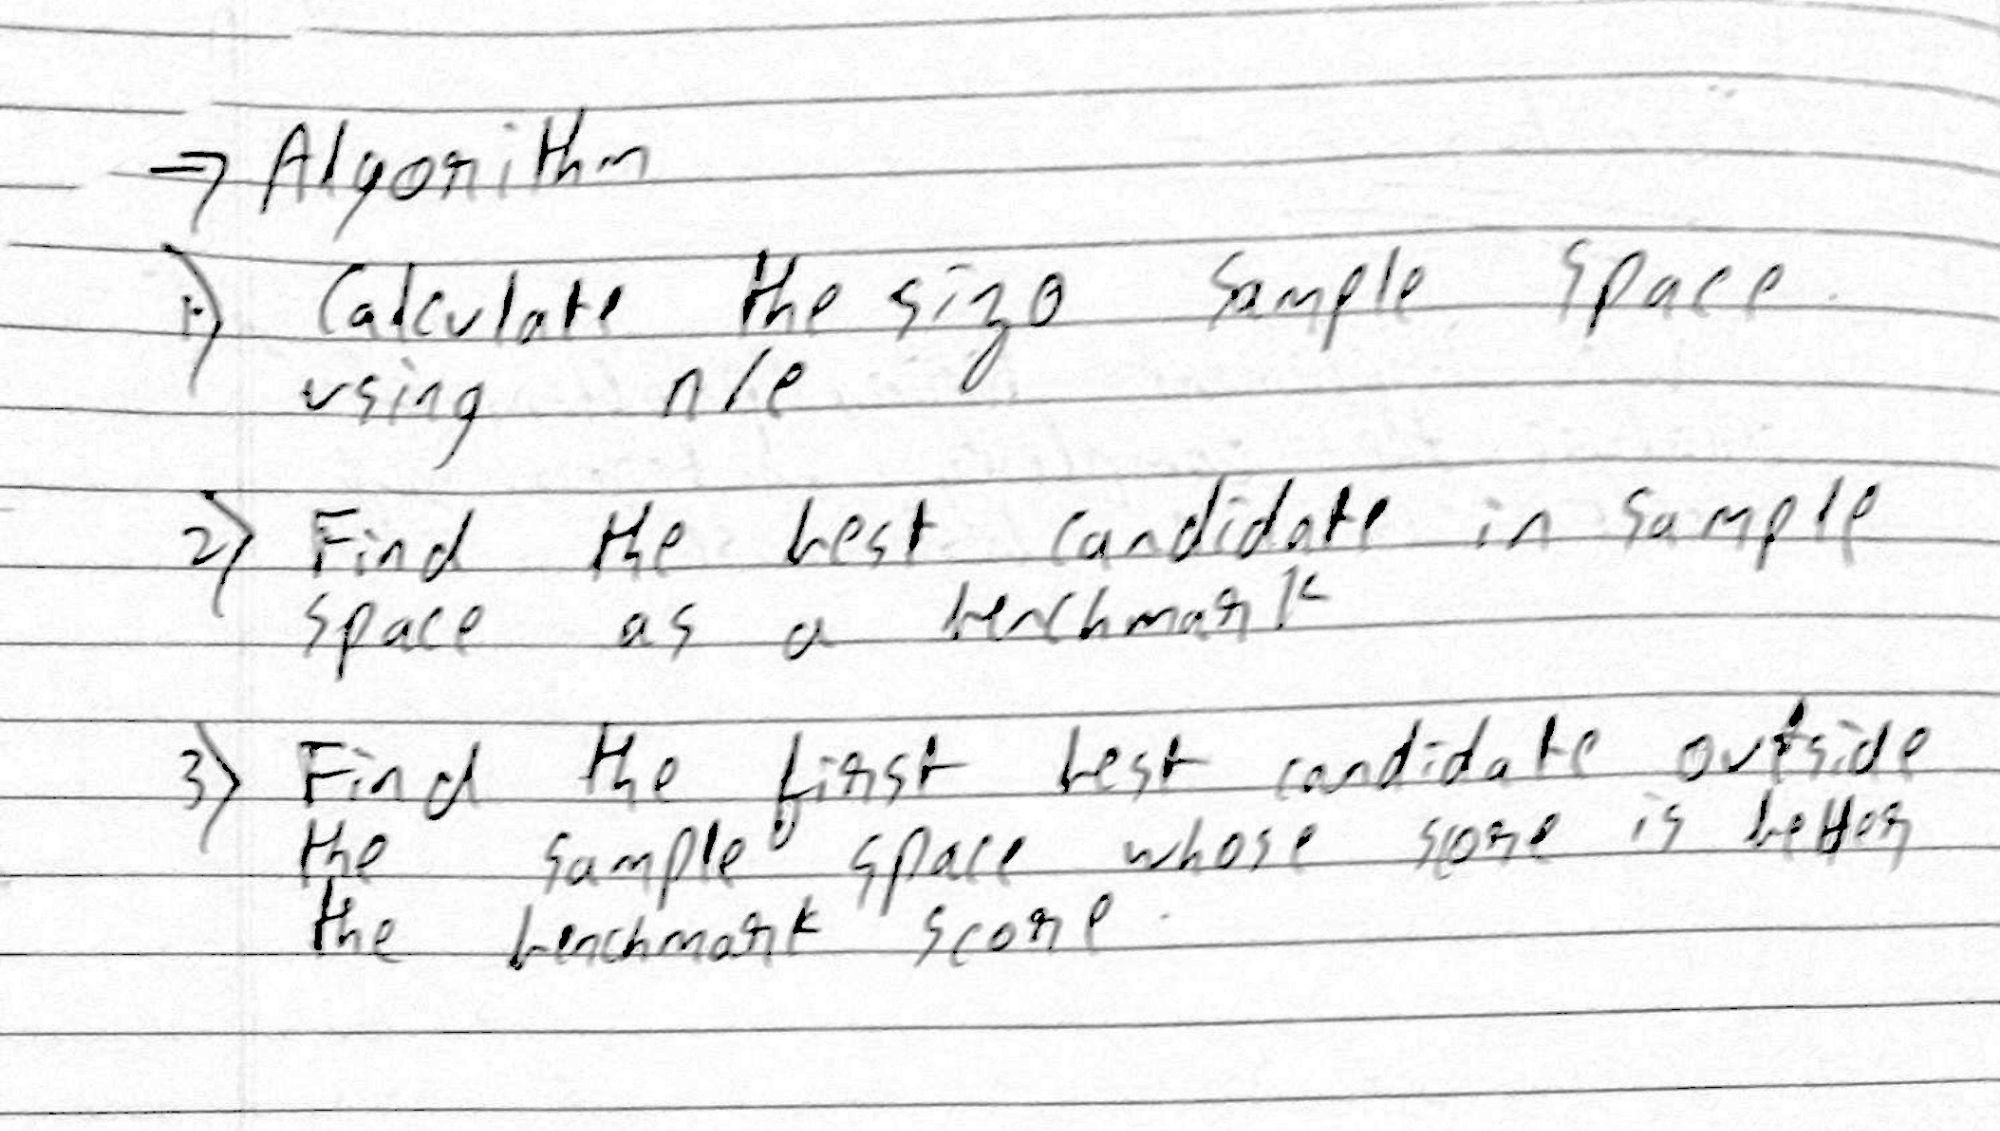 → Algorithm
1) Calculate the size sample space.
using n/e
2) Find the best candidate in sample
space as a benchmark
3) Find the first best candidate outside
the sample space whose score is better
the benchmark score.